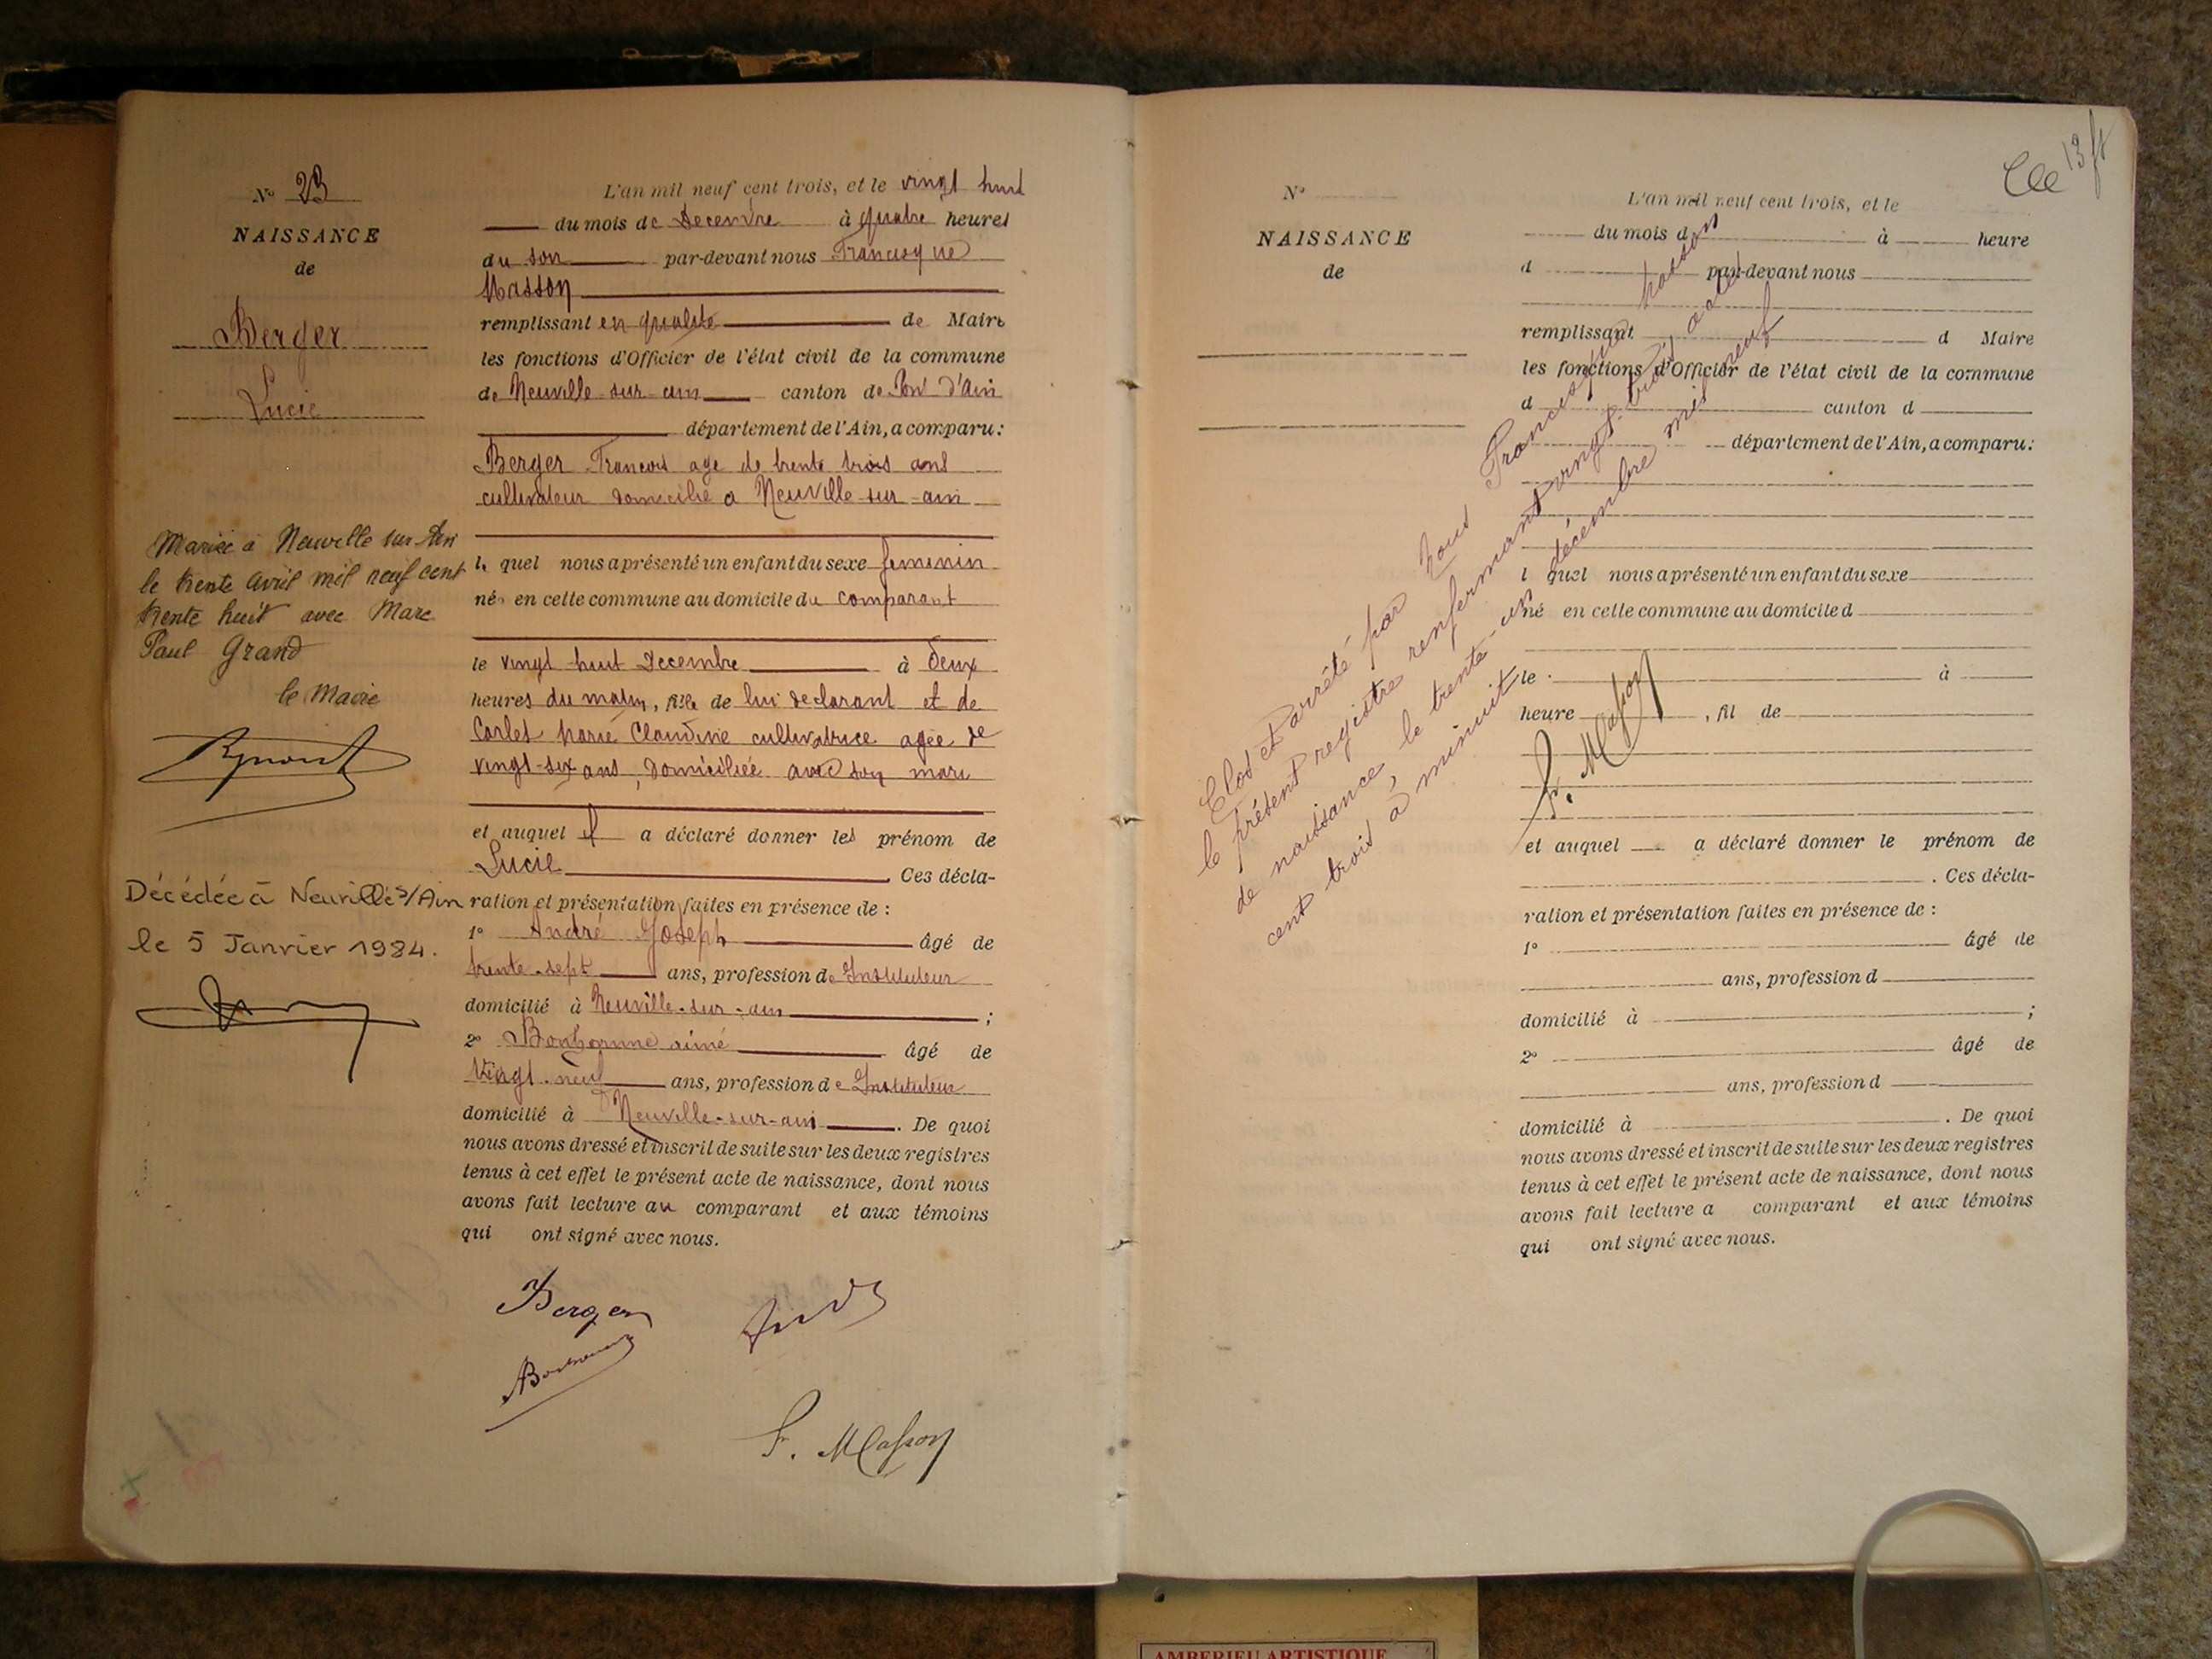 N° 23
NAISSANCE
de
Berger
Lucie
Mariée à Neuville sur Ain
le trente avril mil neuf cent
trente huit avec Marc
Paul Grand
le Maire
Décédée à Neuville s/Ain
le 5 Janvier 1984.
L'an mil neuf cent trois, et le vingt huit
du mois de Decembre à quatre heures
du soir par-devant nous Francisque
Masson
remplissant en qualité de Maire
les fonctions d'Officier de l'état civil de la commune
de Neuville-sur-ain canton de Pont d'Ain
département de l'Ain, a comparu:
Berger Francois age de trente trois ans
cultivateur domicilié a Neuville-sur-ain
le quel nous a présenté un enfant du sexe feminin
née en cette commune au domicile du comparant
le vingt huit Decembre à deux
heures du matin, fille de lui declarant et de
Carlet Marie Claudine cultivatrice agée de
vingt-six ans, domiciliée avec son mari
et auquel il a déclaré donner les prénom de
Lucie. Ces décla-
ration et présentation faites en présence de :
1° André Joseph âgé de
trente-sept ans, profession de Instituteur
domicilié à Neuville-sur-ain ;
2° Bonhomme aimé âgé de
vingt-neuf ans, profession de Instituteur
domicilié à Neuville-sur-ain. De quoi
nous avons dressé et inscrit de suite sur les deux registres
tenus à cet effet le présent acte de naissance, dont nous
avons fait lecture au comparant et aux témoins
qui ont signé avec nous.
Berger
F. Masson
13
N°
NAISSANCE
de
L'an mil neuf cent trois, et le
du mois d à heure
d par-devant nous
remplissant d Maire
les fonctions d'Officier de l'état civil de la commune
d canton d
département de l'Ain, a comparu:
l quel nous a présenté un enfant du sexe
né en cette commune au domicile d
le à
heure , fil de
et auquel a déclaré donner le prénom de
. Ces décla-
ration et présentation faites en présence de :
1° âgé de
ans, profession d
domicilié à ;
2° âgé de
ans, profession d
domicilié à . De quoi
nous avons dressé et inscrit de suite sur les deux registres
tenus à cet effet le présent acte de naissance, dont nous
avons fait lecture a comparant et aux témoins
qui ont signé avec nous.
Clos et arrêté par nous Francisque Masson
le présent registre renfermant vingt-trois actes
de naissance, le trente-un décembre mil neuf
cent trois à minuit
F. Masson
AMBERIEU ARTISTIQUE